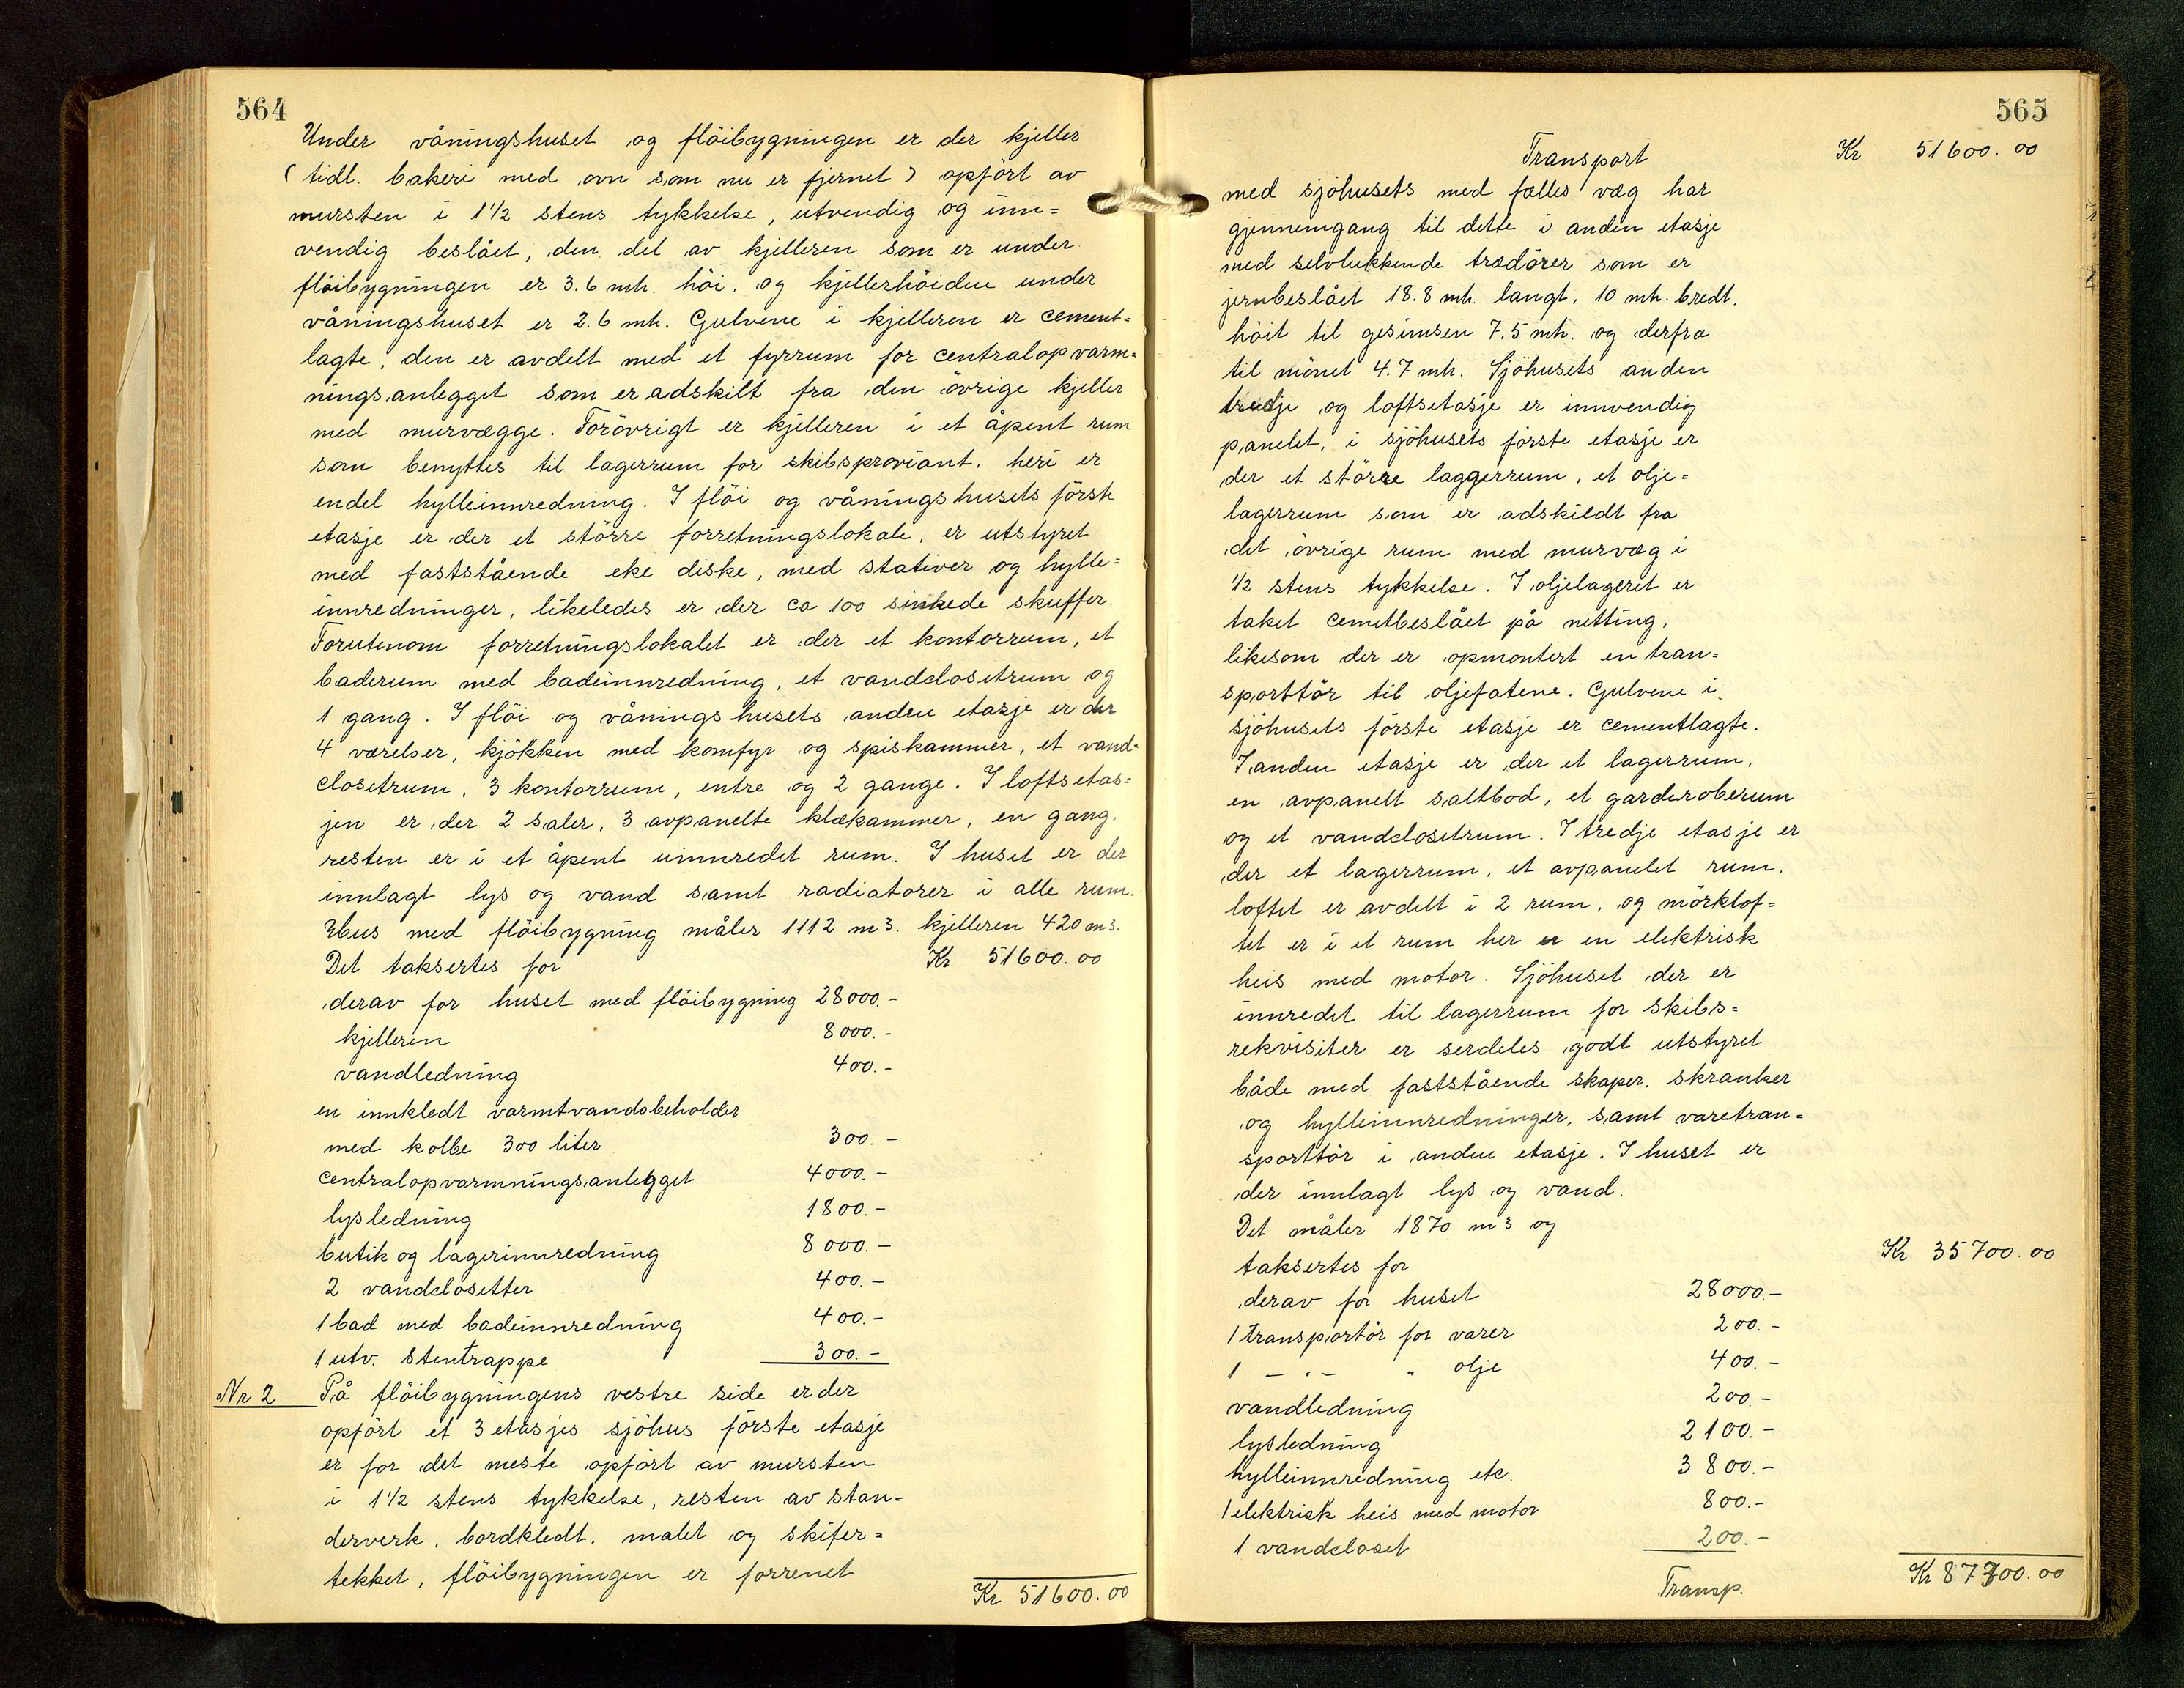 564
Under våningshuset og flöibygningen er der kjeller
(tidl. bakeri med ovn som nu er fjernet) opfört av
mursten i 1½ stens tykkelse, utvendig og inn=
vendig beslået, den del av kjelleren som er under
flöibygningen er 3.6 mh. höi. og kjellerhöiden under
våningshuset er 2.6 mh. Gulvene i kjelleren er cement=
lagte, den er avdelt med et fyrrum for centralopvarm=
ningsanlegget som er adskilt fra den övrige kjeller
med murvægge. Forövrigt er kjelleren i et åpent rum
som benyttes til lagerrum for skibsproviant. heri er
endel hylleinnredning. I flöi og våningshusets förste
etasje er der et större forretningslokale, er utstyret
med faststående eke diske, med stativer og hylle=
innredninger, likeledes er der ca 100 sinkede skuffer.
Forutenom forretningslokalet er der et kontorrum, et
baderum med badeinnredning, et vandclosetrum og
1 gang. I flöi og våningshusets anden etasje er der
4 værelser, kjökken med komfyr og spiskammer, et vand=
closetrum, 3 kontorrum, entre og 2 gange. I loftsetas=
jen er der 2 saler, 3 avpanelte klekammer, en gang.
resten er i et åpent uinnredet rum. I huset er der
innlagt lys og vand samt radiatorer i alle rum.
Hus med flöibygning måler 1112 m3. kjelleren 420 m3.
Det taksertes for Kr 51600.00
derav for huset med flöibygning 28000.-
kjelleren 8000.-
vandledning 400.-
en innkledt varmtvandsbeholder
med kolbe 300 liter 300.-
centralopvarmningsanlegget 4000.-
lysledning 1800.-
butik og lagerinnredning 8000.-
2 vandclosetter 400.-
1 bad med badeinnredning 400.-
1 utv. stentrappe 300.-
Nr 2 På flöibygningens vestre side er der
opfört et 3 etasjes sjöhus förste etasje
er for det meste opfört av mursten
i 1½ stens tykkelse, resten av stan=
derverk, bordkledt. malet og skifer=
tekket, flöibygningen er forrenet
Kr 51600.00
565
Transport Kr 51600.00
med sjöhusets med falles væg har
gjennemgang til dette i anden etasje
med selvlukkende trædörer som er
jernbeslået 18.8 mh. langt, 10 mh. bredt.
höit til gesimsen 7.5 mh. og derfra
til mönet 4.7 mh. Sjöhusets anden
tredje og loftsetasje er innvendig
panelet, i sjöhusets förste etasje er
der et större laggerrum, et olje=
lagerrum som er adskildt fra
det övrige rum med murvæg i
½ stens tykkelse. I oljelageret er
taket cemetbeslået på netting,
likesom der er opmontert en tran=
sporttör til oljefatene. Gulvene i
sjöhusets förste etasje er cementlagte.
I anden etasje er der et lagerrum,
en avpanelt saltbod, et garderoberum
og et vandclosetrum. I tredje etasje er
der et lagerrum, et avpanelet rum.
loftet er avdelt i 2 rum, og mörklof=
tet er i et rum her er en elektrisk
heis med motor. Sjöhuset der er
innredet til lagerrum for skibs=
rekvisiter er serdeles godt utstyret
både med faststående skaper, skranker
og hylleinnredninger, samt varetran=
sporttör i anden etasje. I huset er
der innlagt lys og vand.
Det måler 1870 m3 og
taksertes for Kr 35700.00
derav for huset 28000.-
1 transportör for varer 200.-
1 - " - " olje 400.-
vandledning 200.-
lysledning 2100.-
hylleinnredning etc. 3800.-
1 elektrisk heis med motor 800.-
1 vandcloset 200.-
Transp. Kr 87300.00